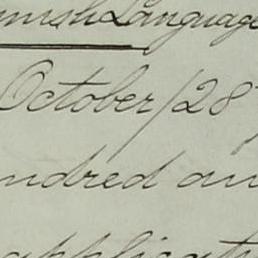 Language
October/28
ndred an
applicat